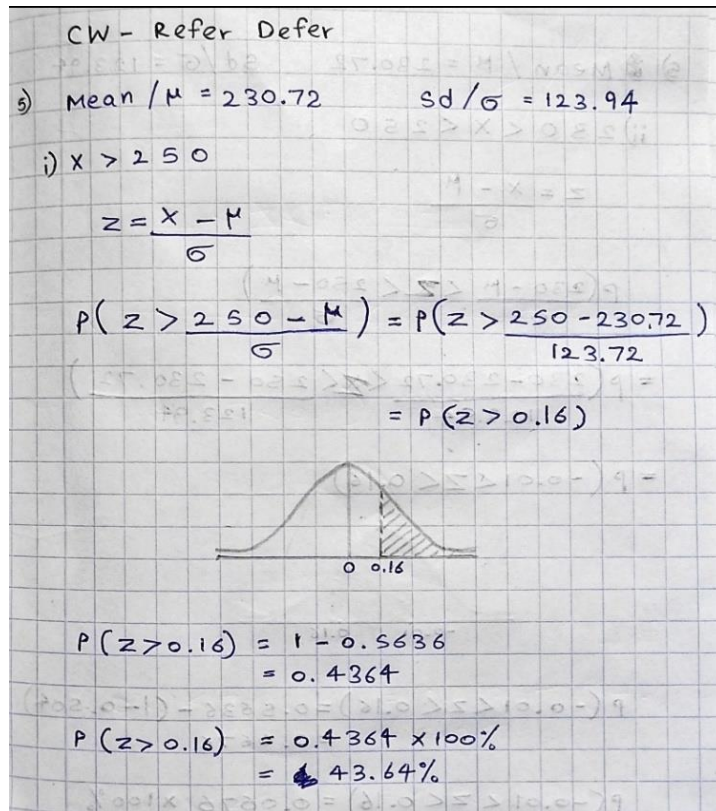 CW - Refer Defer
5) Mean / μ = 230.72 Sd/σ = 123.94
i) X > 250
z = X - μ / σ
P( Z > 250 - μ / σ ) = P(Z > 250 - 230.72 / 123.72 )
= P (Z > 0.16)
0 0.16
P (Z > 0.16) = 1 - 0.5636
= 0.4364
P (Z > 0.16) = 0.4364 x 100%
= 43.64%